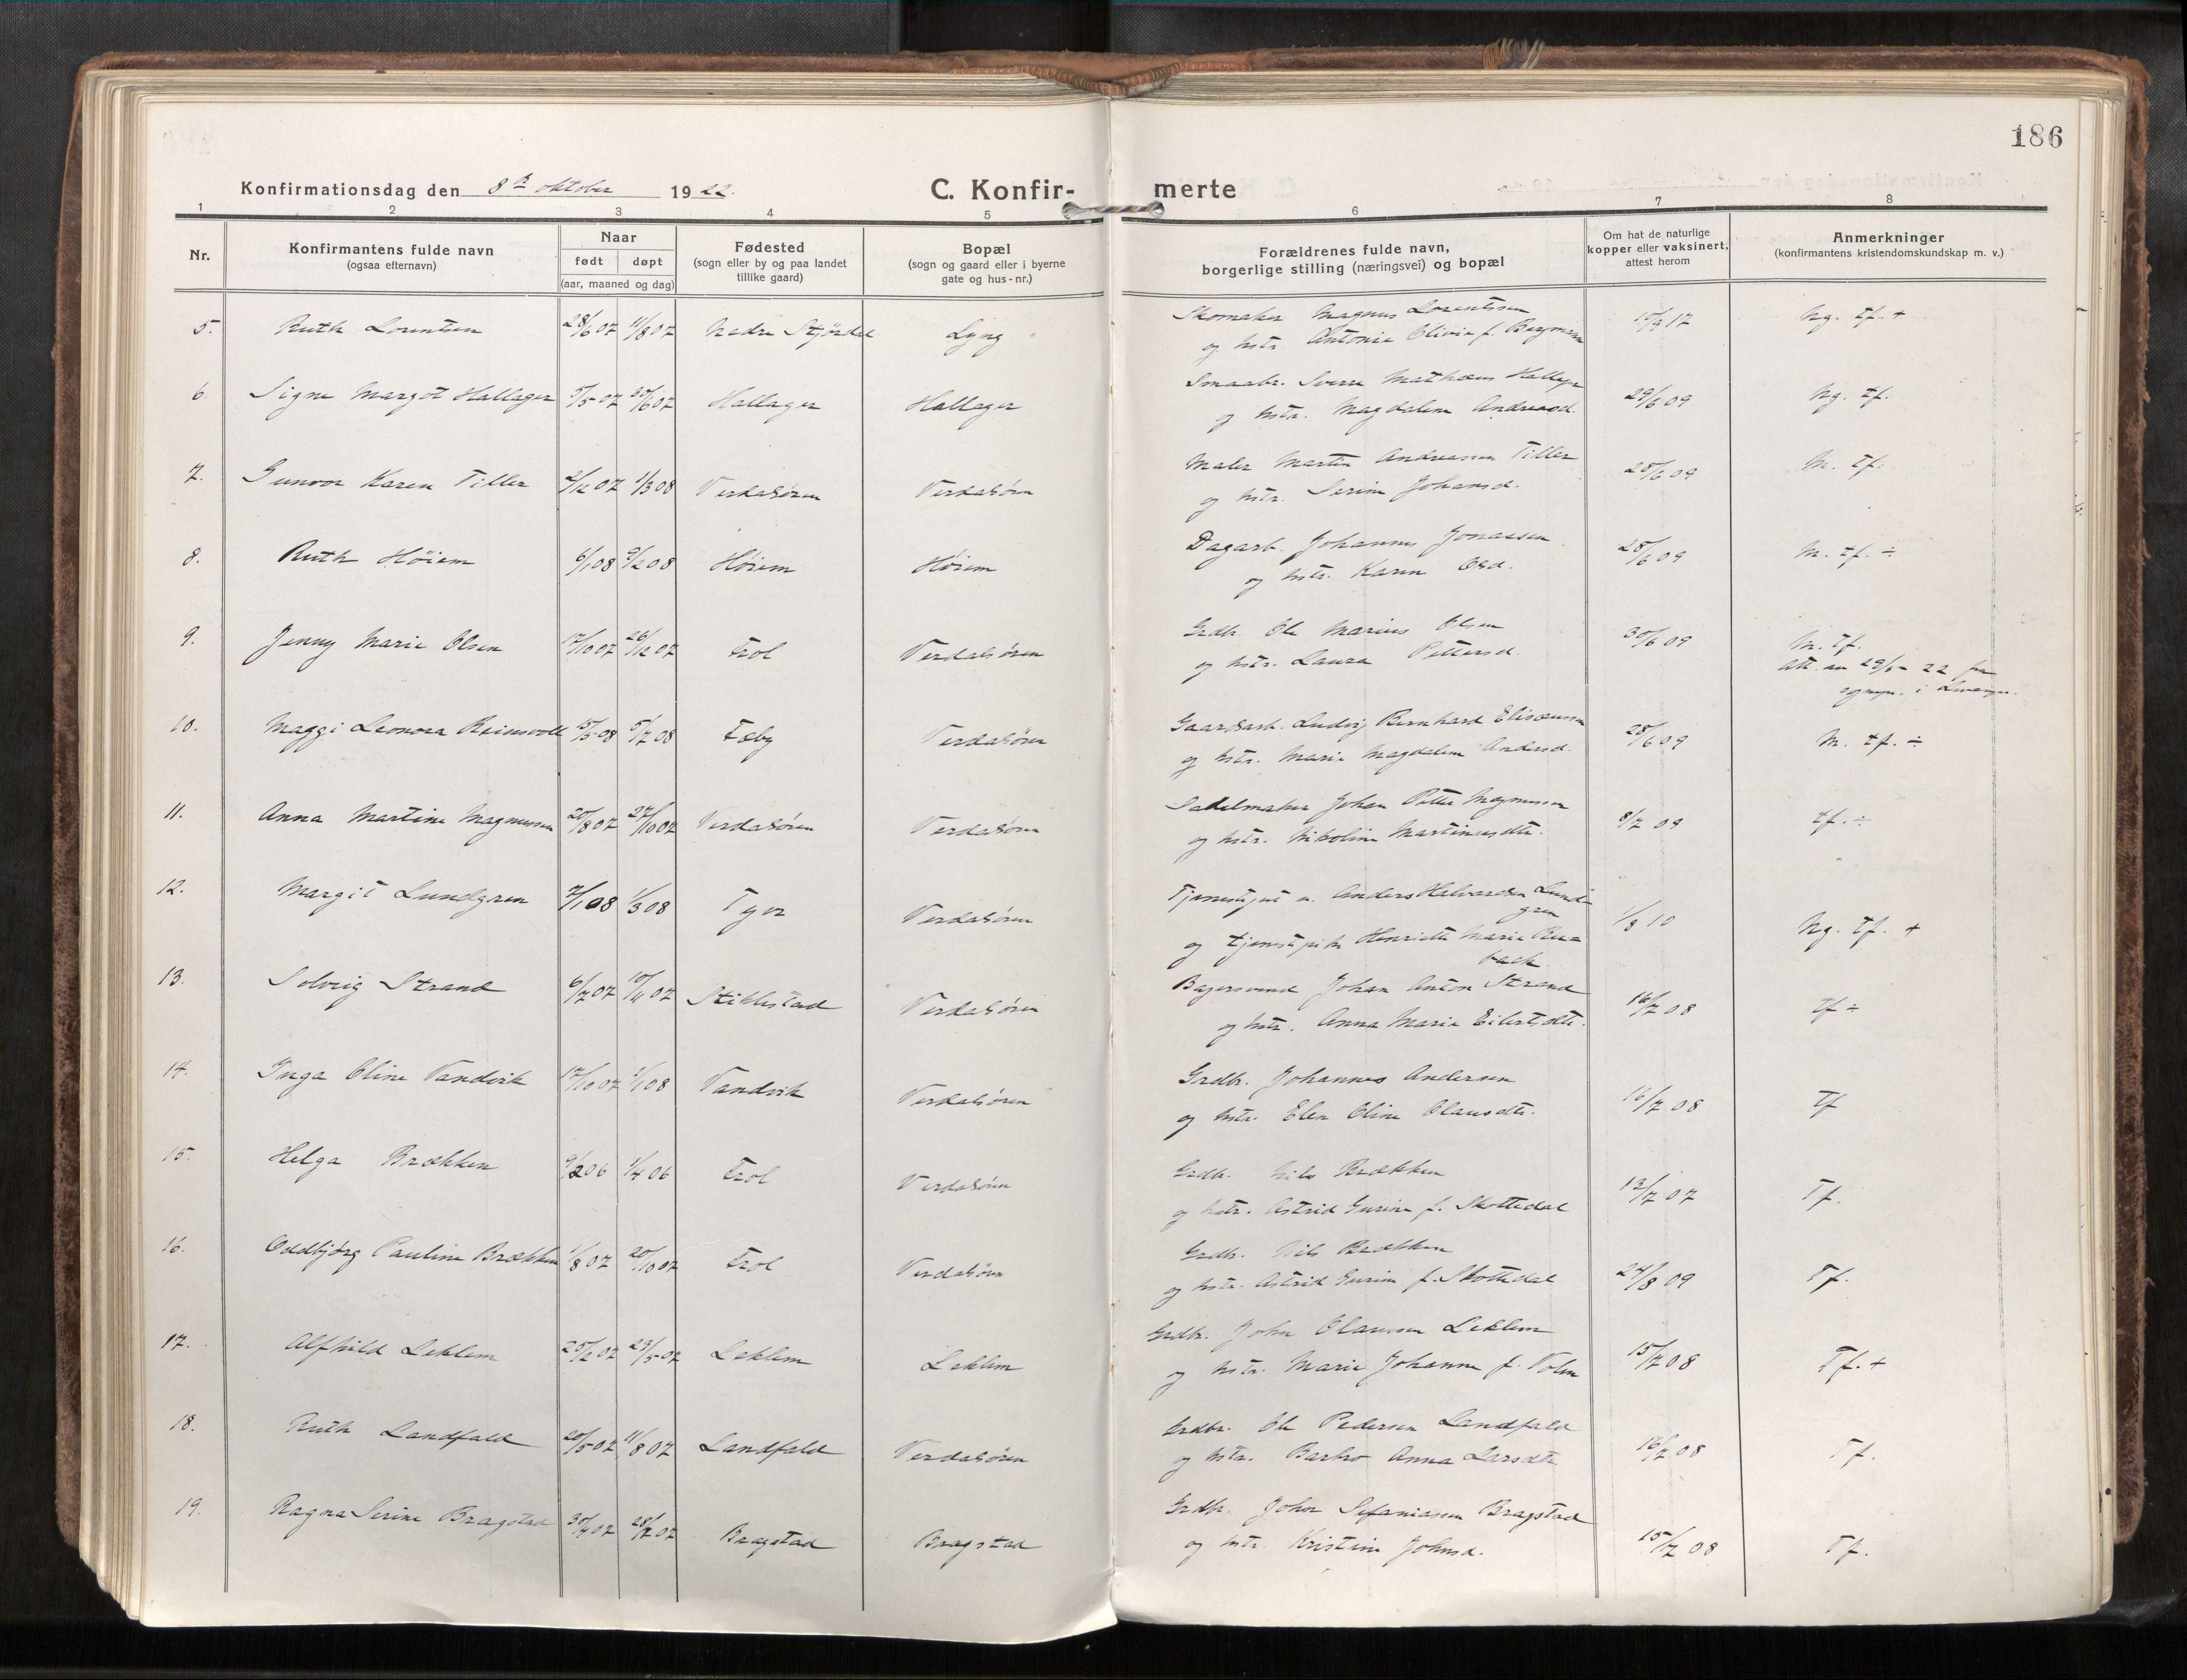 186
Konfirmationsdag den 8de oktober 1922.
C. Konfirmerte
1 2 3 4 5 6 7 8
Nr.
Konfirmantens fulde navn
(ogsaa efternavn)
Naar
født døpt
(aar, maaned og dag)
Fødested
(sogn eller by og paa landet
tillike gaard)
Bopæl
(sogn og gaard eller i byerne
gate og hus-nr.)
Forældrenes fulde navn,
borgerlige stilling (næringsvei) og bopæl
Om hat de naturlige
kopper eller vaksinert,
attest herom
Anmerkninger
(konfirmantens kristendomskundskap m. v.)
5. Ruth Lorentsen 28/6 07 11/8 07 Nedre Stjørdal Lyng Skomaker Magnus Lorentsen 10/9 17 Ng. tf. +
og hstr. Antonie Olivie f. Bergmann
6. Signe Margot Hallager 5/5 07 30/6 07 Hallager Hallager Smaabr. Sverre Mathæus Hallager 29/6 09 Ng. tf.
og hstr. Magdalene Andreasd.
7. Gunvor Karen Tiller 2/12 07 1/3 08 Verdalsøren Verdalsøren Maler Martin Andreassen Tiller 28/6 09 M. tf.
og hstr. Serine Johansd.
8. Ruth Høiem 6/1 08 9/2 08 Høiem Høiem Dagarb. Johannes Jonassen 28/6 09 M. tf. ÷
og hstr. Karen Olsd.
9. Jenny Marie Olsen 17/10 07 26/12 07 Trol Verdalsøren Grdbr. Ole Marius Olsen 30/6 09 M. tf.
og hstr. Laura Pettersd. att. av 29/9 - 22 fra
sognepr. i Levanger.
10. Maggi Leonora Reinsvoll 15/5 08 5/7 08 Fæby Verdalsøren Gaardsarb. Ludvig Bernhard Elisæussen 28/6 09 M. tf. ÷
og hstr. Marie Magdalene Andersd.
11. Anna Martine Magnussen 20/8 07 27/10 07 Verdalsøren Verdalsøren Sadelmaker Johan Petter Magnussen 8/7 09 tf. ÷
og hstr. Nikoline Martinusdtr.
12. Margit Lundgren 7/1 08 1/3 08 Tyer Verdalsøren Tjenestegut u. Anders Halvardsen Lund-
gren 1/8 10 Ng. tf. +
og tjenestepike Henriette Marie
13. Solveig Strand 6/7 07 10/11 07 Stiklestad Verdalsøren Bagersvend Johan Anton Strand 16/7 08 tf ÷
og hstr. Anna Marie Eilertsdtr.
14. Inga Oline Vandvik 17/10 07 1/1 08 Vandvik Verdalsøren Grdbr. Johannes Andersen 16/7 08 Tf
og hstr. Elen Oline Olausdtr.
15. Helga Brækken 9/2 06 1/4 06 Trol Verdalsøren Grdbr. Nils Brækken 13/7 07 Tf.
og hstr. Astrid Gurine f. Skottedal
16. Oddbjørg Pauline Brækken 1/8 07 20/10 07 Trol Verdalsøren Grdbr. Nils Brækken 24/8 09 Tf.
og hstr. Astrid Gurine f. Skottedal
17. Alfhild Leklem 25/2 07 23/5 07 Leklem Leklem Grdbr. John Olaussen Leklem 15/7 08 Tf. +
og hstr. Marie Johanne f. Volen
18. Ruth Landfald 20/5 07 11/8 07 Landfald Verdalsøren Grdbr. Ole Pedersen Landfald 16/7 08 Tf.
og hstr. Barbro Anna Larsdtr
19. Ragna Serine Bragstad 30/4 07 28/7 07 Bragstad Bragstad Grdbr. John Sefaniassen Bragstad 15/7 08 Tf.
og hstr. Kristine Johnsd.